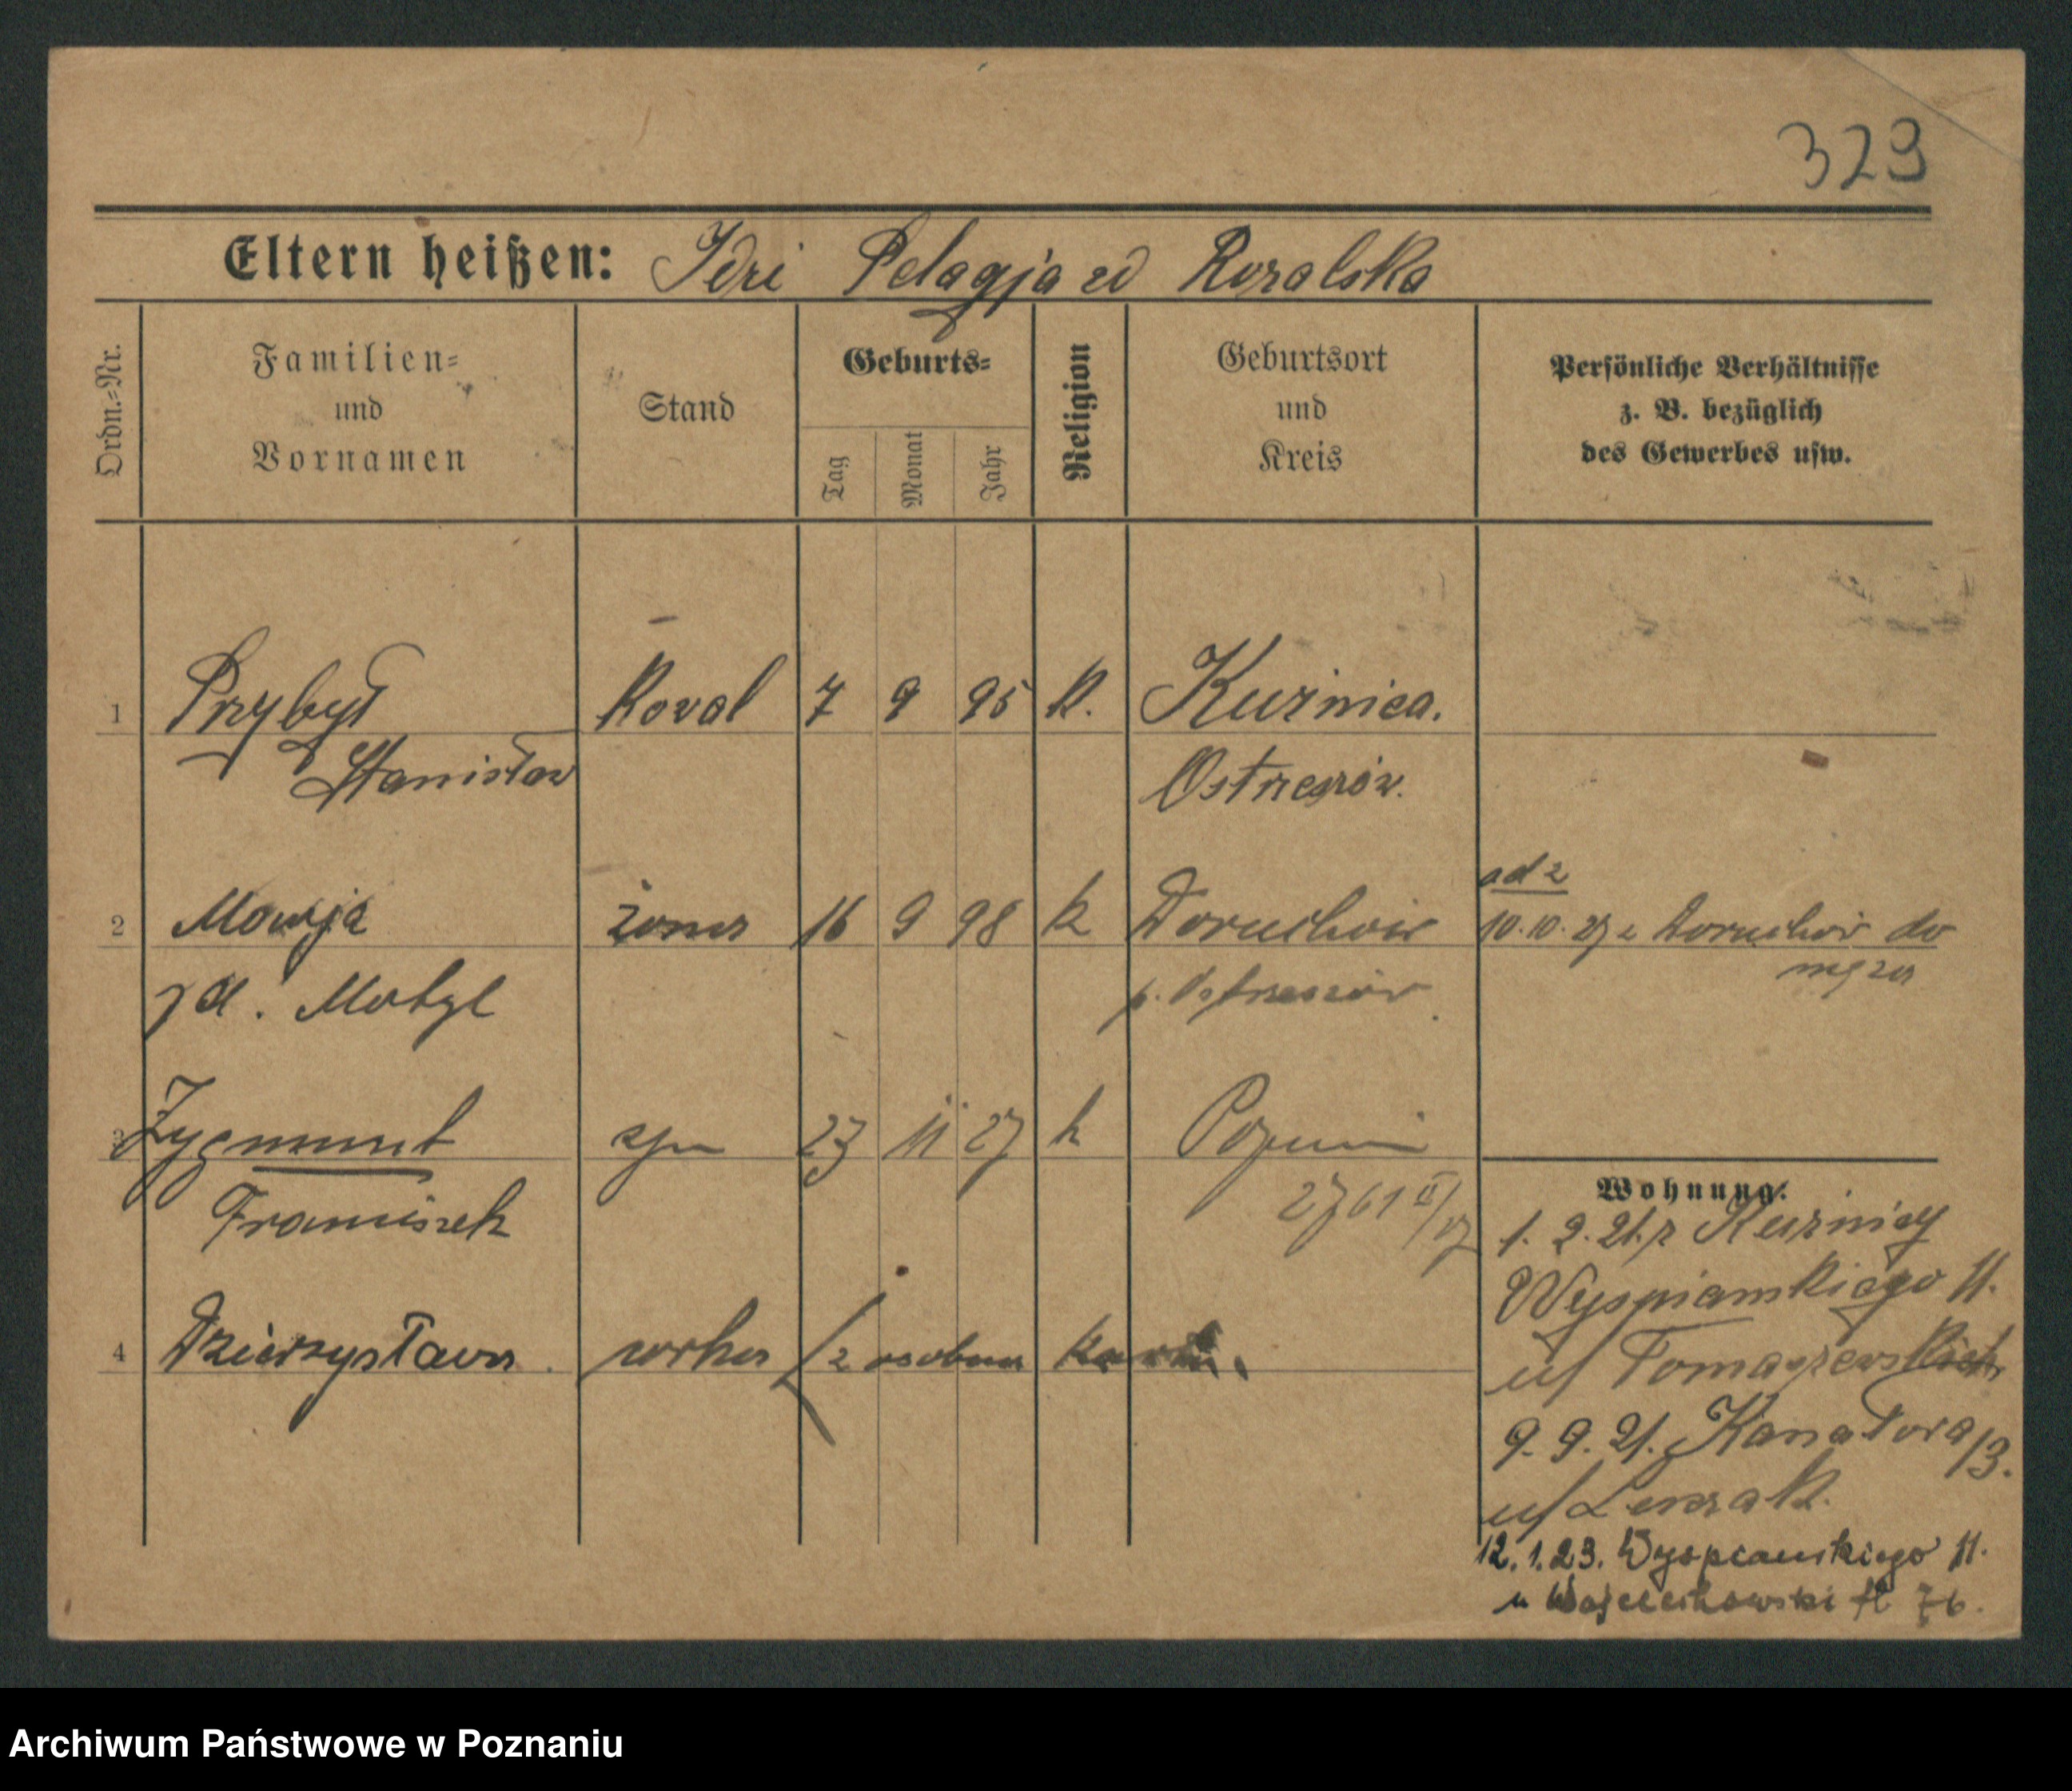 323
Eltern heißen: Idzi Pelagja zd Kozalska
Ordn.=Nr.
Familien=
und
Vornamen
Stand
Geburts=
Tag
Monat
Jahr
Religion
Geburtsort
und
Kreis
Persönliche Verhältnisse
z. B. bezüglich
des Gewerbes usw.
1 Przybył Kowal 7 9 95 K. Kuźnica.
Stanisław Ostrzeszów.
ad 2
2 Marja żona 16 9 98 k Doruchów 10.10.27 z Doruchów do
męża
zd. Motyl p. Ostrzeszów.
3 Zygmunt syn 23 11 27 k Poznań
2761 II/27
Franciszek
4 Dzierżysława. córka osobna karta.
Wohnung:
1. 2. 21. z Kuźnicy
Wyspiańskiego 11.
u/ Tomaszewskich
9. 9. 21. Kanałowa 13.
12. 1. 23. Wyspiańskiego 11.
u Wojciechowski 76.
Archiwum Państwowe w Poznaniu